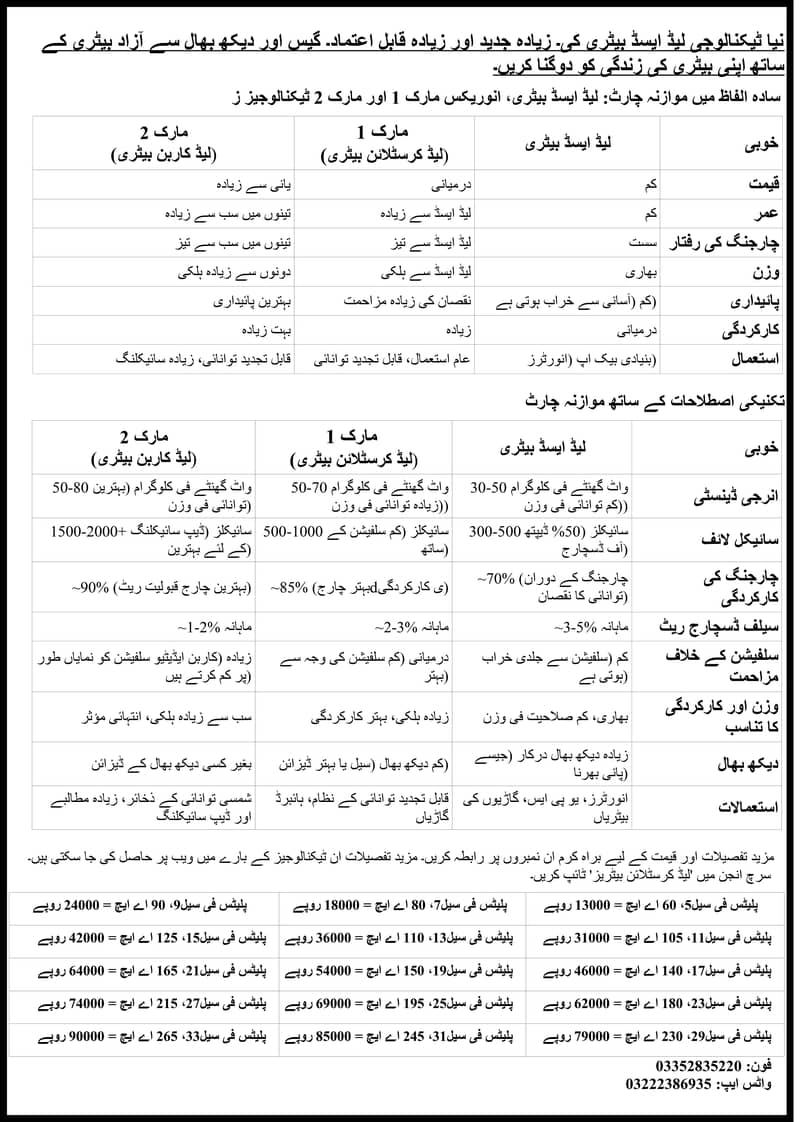 نیا ٹیکنالوجی لیڈ ایسڈ بیٹری کی۔ زیادہ جدید اور زیادہ قابل اعتماد۔ گیس اور دیکھ بھال سے آزاد بیٹری کے
ساتھ اپنی بیٹری کی زندگی کو دوگنا کریں۔
سادہ الفاظ میں موازنہ چارٹ: لیڈ ایسڈ بیٹری، انوریکس مارک 1 اور مارک 2 ٹیکنالوجیز ز
خوبی لیڈ ایسڈ بیٹری مارک 1 مارک 2
(لیڈ کرسٹلائن بیٹری) (لیڈ کاربن بیٹری)
قیمت کم درمیانی یانی سے زیادہ
عمر کم لیڈ ایسڈ سے زیادہ تینوں میں سب سے زیادہ
چارجنگ کی رفتار سست لیڈ ایسڈ سے تیز تینوں میں سب سے تیز
وزن بھاری لیڈ ایسڈ سے ہلکی دونوں سے زیادہ ہلکی
پائیداری (کم (آسانی سے خراب ہوتی ہے نقصان کی زیادہ مزاحمت بہترین پائیداری
کارکردگی درمیانی زیادہ بہت زیادہ
استعمال (بنیادی بیک اپ (انورٹرز عام استعمال، قابل تجدید توانائی قابل تجدید توانائی، زیادہ سائیکلنگ
تکنیکی اصطلاحات کے ساتھ موازنہ چارٹ
خوبی لیڈ ایسڈ بیٹری مارک 1 مارک 2
(لیڈ کرسٹلائن بیٹری) (لیڈ کاربن بیٹری)
انرجی ڈینسٹی واٹ گھنٹے فی کلوگرام 30-50 واٹ گھنٹے فی کلوگرام 50-70 واٹ گھنٹے فی کلوگرام (بہترین 50-80
((کم توانائی فی وزن ((زیادہ توانائی فی وزن (توانائی فی وزن
سائیکل لائف سائیکلز (50% ڈیپتھ 300-500 سائیکلز (کم سلفیشن کے 500-1000 سائیکلز (ڈیپ سائیکلنگ +1500-2000
(آف ڈسچارج (ساتھ (کے لئے بہترین
چارجنگ کی چارجنگ کے دوران) 70%~ (ی کارکردگیdبہتر چارج) 85%~ (بہترین چارج قبولیت ریٹ) 90%~
کارکردگی (توانائی کا نقصان
سیلف ڈسچارج ریٹ ماہانہ 3-5%~ ماہانہ 2-3%~ ماہانہ 1-2%~
سلفیشن کے خلاف کم (سلفیشن سے جلدی خراب درمیانی (کم سلفیشن کی وجہ سے زیادہ (کاربن ایڈیٹیو سلفیشن کو نمایاں طور
مزاحمت (ہوتی ہے (بہتر (پر کم کرتے ہیں
وزن اور کارکردگی بھاری، کم صلاحیت فی وزن زیادہ ہلکی، بہتر کارکردگی سب سے زیادہ ہلکی، انتہائی مؤثر
کا تناسب
دیکھ بھال زیادہ دیکھ بھال درکار (جیسے (کم دیکھ بھال (سیل یا بہتر ڈیزائن بغیر کسی دیکھ بھال کے ڈیزائن
(پانی بھرنا
استعمالات انورٹرز، یو پی ایس، گاڑیوں کی قابل تجدید توانائی کے نظام، ہائبرڈ شمسی توانائی کے ذخائر، زیادہ مطالبے
بیٹریاں گاڑیاں اور ڈیپ سائیکلنگ
مزید تفصیلات اور قیمت کے لیے براہ کرم ان نمبروں پر رابطہ کریں۔ مزید تفصیلات ان ٹیکنالوجیز کے بارے میں ویب پر حاصل کی جا سکتی ہیں۔
سرچ انجن میں 'لیڈ کرسٹلائن بیٹریز' ٹائپ کریں۔
پلیٹس فی سیل5، 60 اے ایچ = 13000 روپے پلیٹس فی سیل7، 80 اے ایچ = 18000 روپے پلیٹس فی سیل9، 90 اے ایچ = 24000 روپے
پلیٹس فی سیل11، 105 اے ایچ = 31000 روپے پلیٹس فی سیل13، 110 اے ایچ = 36000 روپے پلیٹس فی سیل15، 125 اے ایچ = 42000 روپے
پلیٹس فی سیل17، 140 اے ایچ = 46000 روپے پلیٹس فی سیل19، 150 اے ایچ = 54000 روپے پلیٹس فی سیل21، 165 اے ایچ = 64000 روپے
پلیٹس فی سیل23، 180 اے ایچ = 62000 روپے پلیٹس فی سیل25، 195 اے ایچ = 69000 روپے پلیٹس فی سیل27، 215 اے ایچ = 74000 روپے
پلیٹس فی سیل29، 230 اے ایچ = 79000 روپے پلیٹس فی سیل31، 245 اے ایچ = 85000 روپے پلیٹس فی سیل33، 265 اے ایچ = 90000 روپے
فون: 03352835220
واٹس ایپ: 03222386935